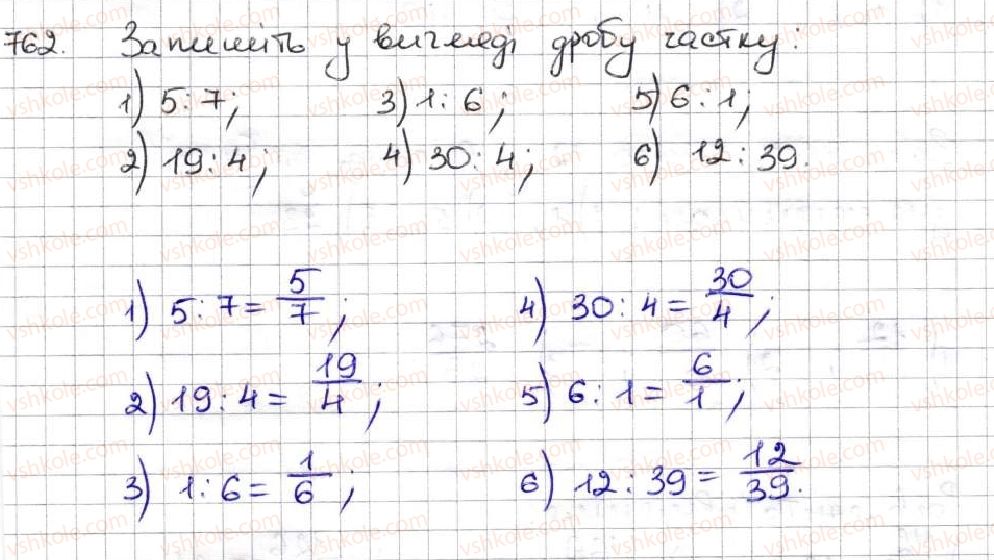 762. Запишіть у вигляді дробу частку:
1) 5:7; 3) 1:6; 5) 6:1;
2) 19:4; 4) 30:4; 6) 12:39.
1) 5:7 = 5/7; 4) 30:4 = 30/4;
2) 19:4 = 19/4; 5) 6:1 = 6/1;
3) 1:6 = 1/6; 6) 12:39 = 12/39.
vshkole.com